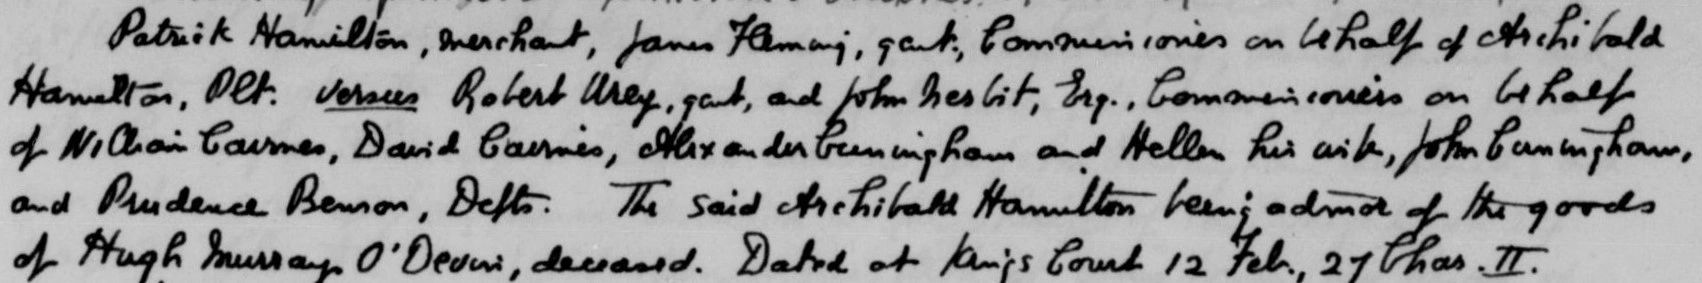 Patrick Hamilton, merchant, James Fleming, gent., Commissioners on behalf of Archibald
Hamilton, Plt. versus Robert Urey, gent, and John Nesbit, Esq., Commissioners on behalf
of William Cairnes, David Cairnes, Alexander Cuningham and Hellen his wife, John Cuningham,
and Prudence Benson, Defts. The said Archibald Hamilton being admor of the goods
of Hugh Murray O'Devin, deceased. Dated at Kings Court 12 Feb., 27 Chas. II.